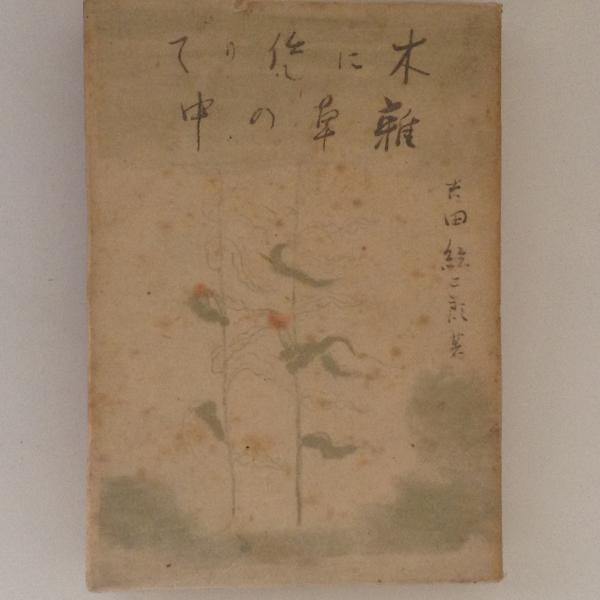 木に凭りて
雜草の中
吉田絃二郎著